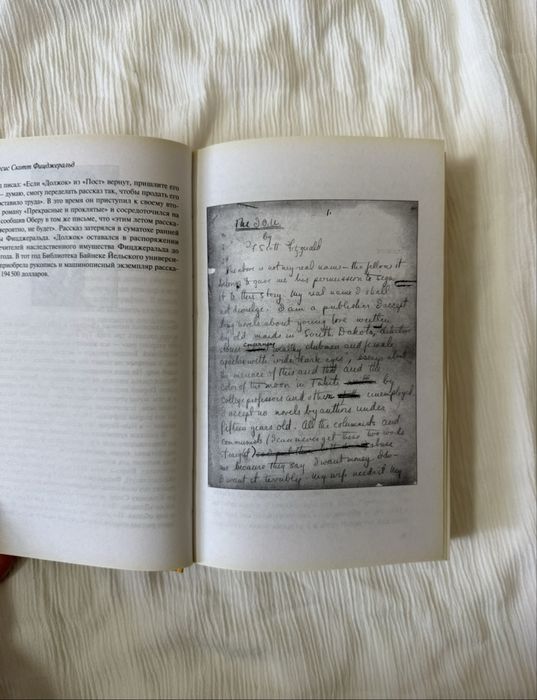 сис Скотт Фицджеральд
писал: «Если «Должок» из «Пост» вернут, пришлите его
— думаю, смогу переделать рассказ так, чтобы продать его
оставило труда». В это время он приступил к своему вто-
роману «Прекрасные и проклятые» и сосредоточился на
сообщив Оберу в том же письме, что «этим летом расска-
вероятно, не будет». Рассказ затерялся в суматохе ранней
ы Фицджеральда. «Должок» оставался в распоряжении
ечителей наследственного имущества Фицджеральда до
года. В тот год Библиотека Байнеке Йельского универси-
приобрела рукопись и машинописный экземпляр расска-
194 500 долларов.
1.
The I.O.U.
by
F Scott Fitzgerald
The above is not my real name — the fellow it
belongs to gave me his permission to sign
it to this story. My real name I shall
not divulge. I am a publisher. I accept
long novels about young love written
by old maids in South Dakota, detective
stories concerning wealthy clubmen and female
apaches with "wide dark eyes", essays about
the menace of this and that and the
color of the moon in Tahiti by
college professors and other unemployed.
I accept no novels by authors under
fifteen years old. All the columnists and
communists (I can never get these two words
straight) abuse
me because they say I want money. I do—
I want it terribly. My wife needs it. My